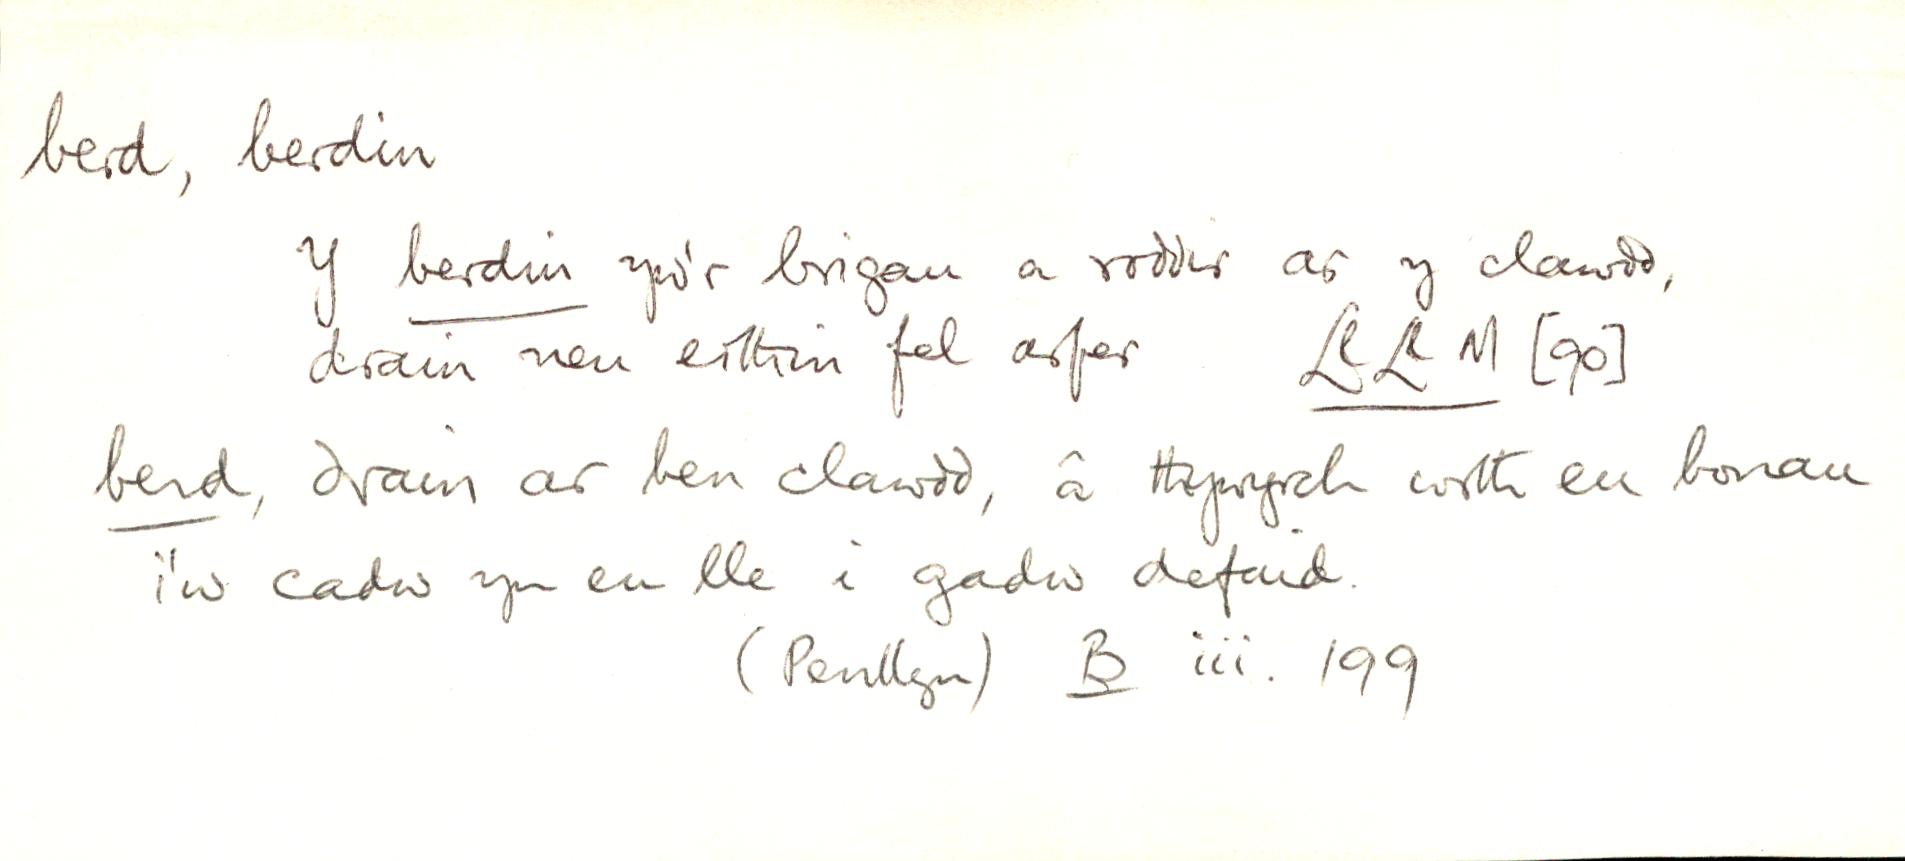 berd, berdin
Y berdin yw'r brigau a roddir ar y clawdd,
drain neu eithin fel arfer LlLlM [90]
berd, drain ar ben clawdd, â thywyrch wrth eu bonau
i'w cadw yn eu lle i gadw defaid.
(Penllyn) B iii. 199